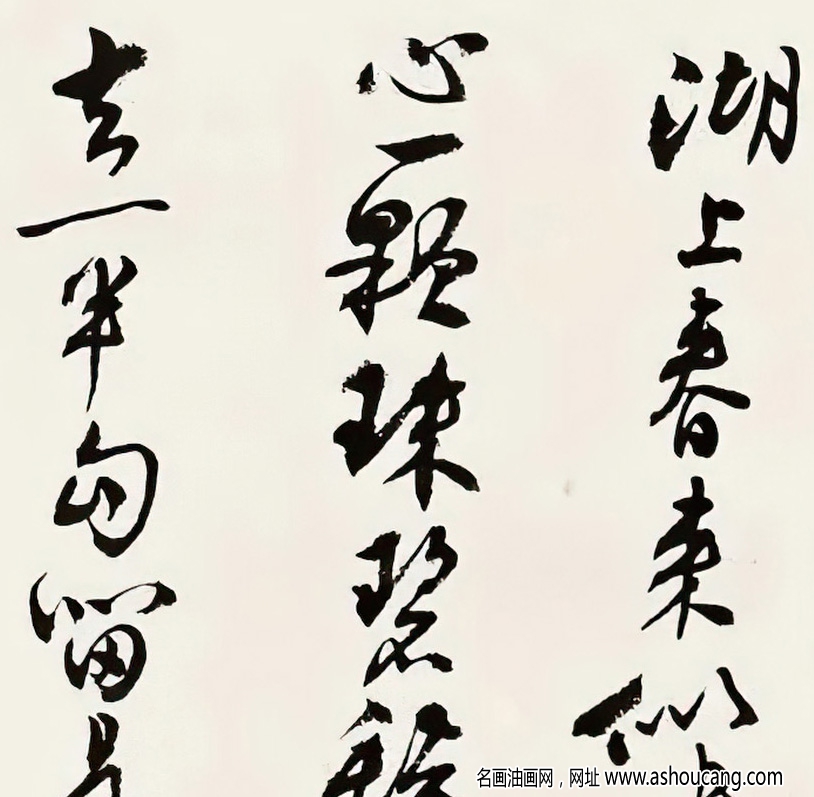 湖上春来似
心一颗珠碧
去一半勾留
名画油画网，网址 www.ashoucang.com